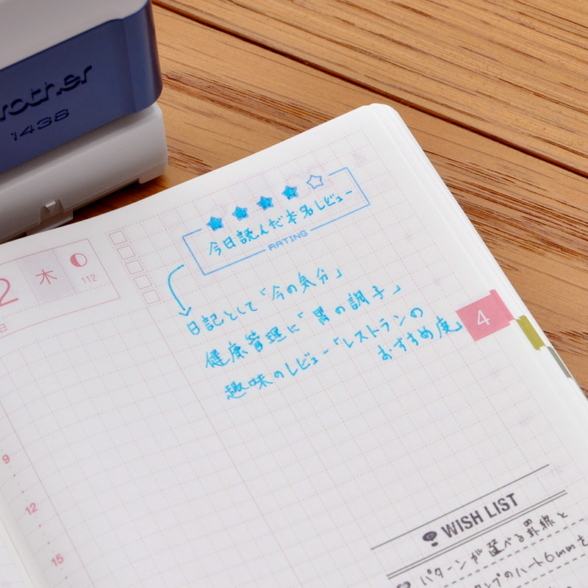 brother
1438
2
木
112
日
今日読んだ本名レビュー
RATING
日記として「今の気分」
健康管理に「胃の調子」
趣味のレビュー「レストランの
おすすめ度」
4
9
12
15
WISH LIST
パターンが選べる罫線と
のハート6mmを